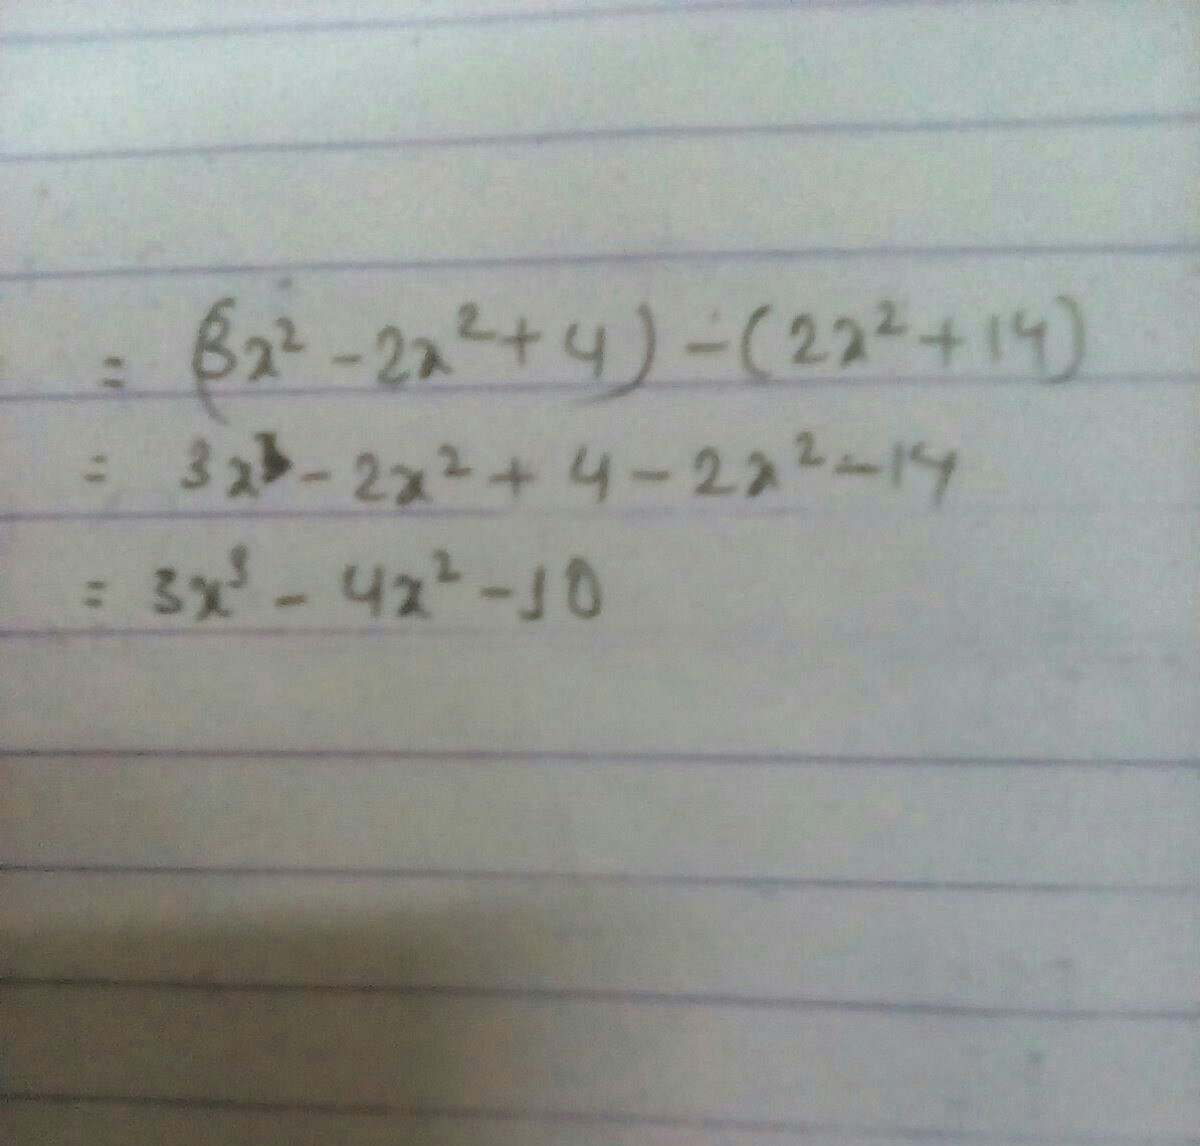 = (3x² - 2x² + 4) - (2x² + 14)
= 3x³ - 2x² + 4 - 2x² - 14
= 3x³ - 4x² - 10